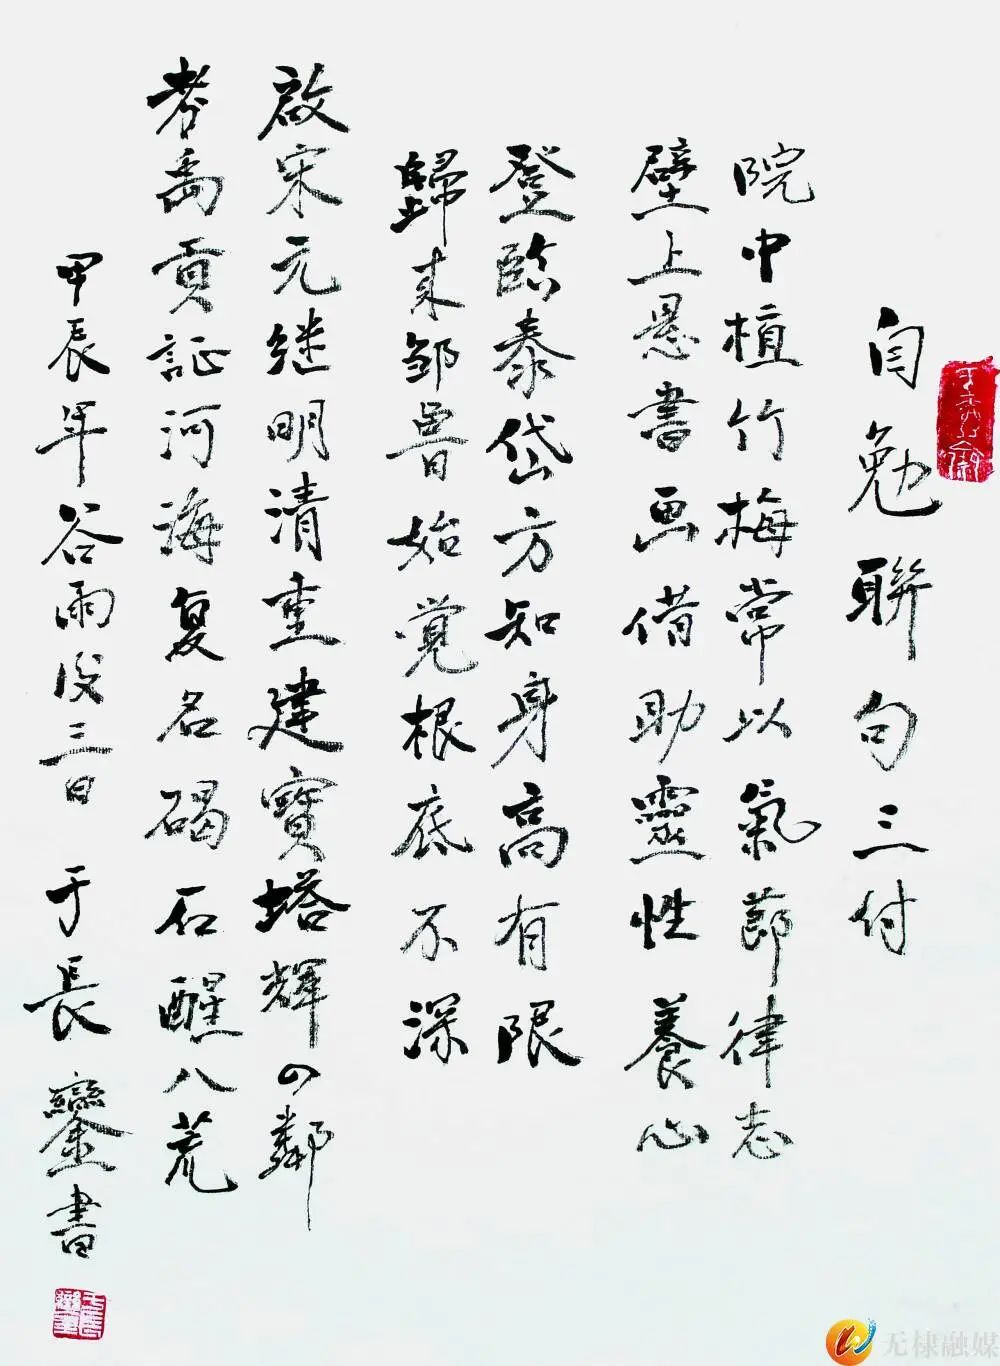 自勉聯句三付
院中植竹梅常以氣節律志
壁上悬書画借助靈性養心
登臨泰岱方知身高有限
歸来邹魯始覚根底不深
啟宋元继明清重建寶塔輝四鄰
考禹貢証河海复名碣石醒八荒
甲辰年谷雨后三日 于長鑾書
无棣融媒